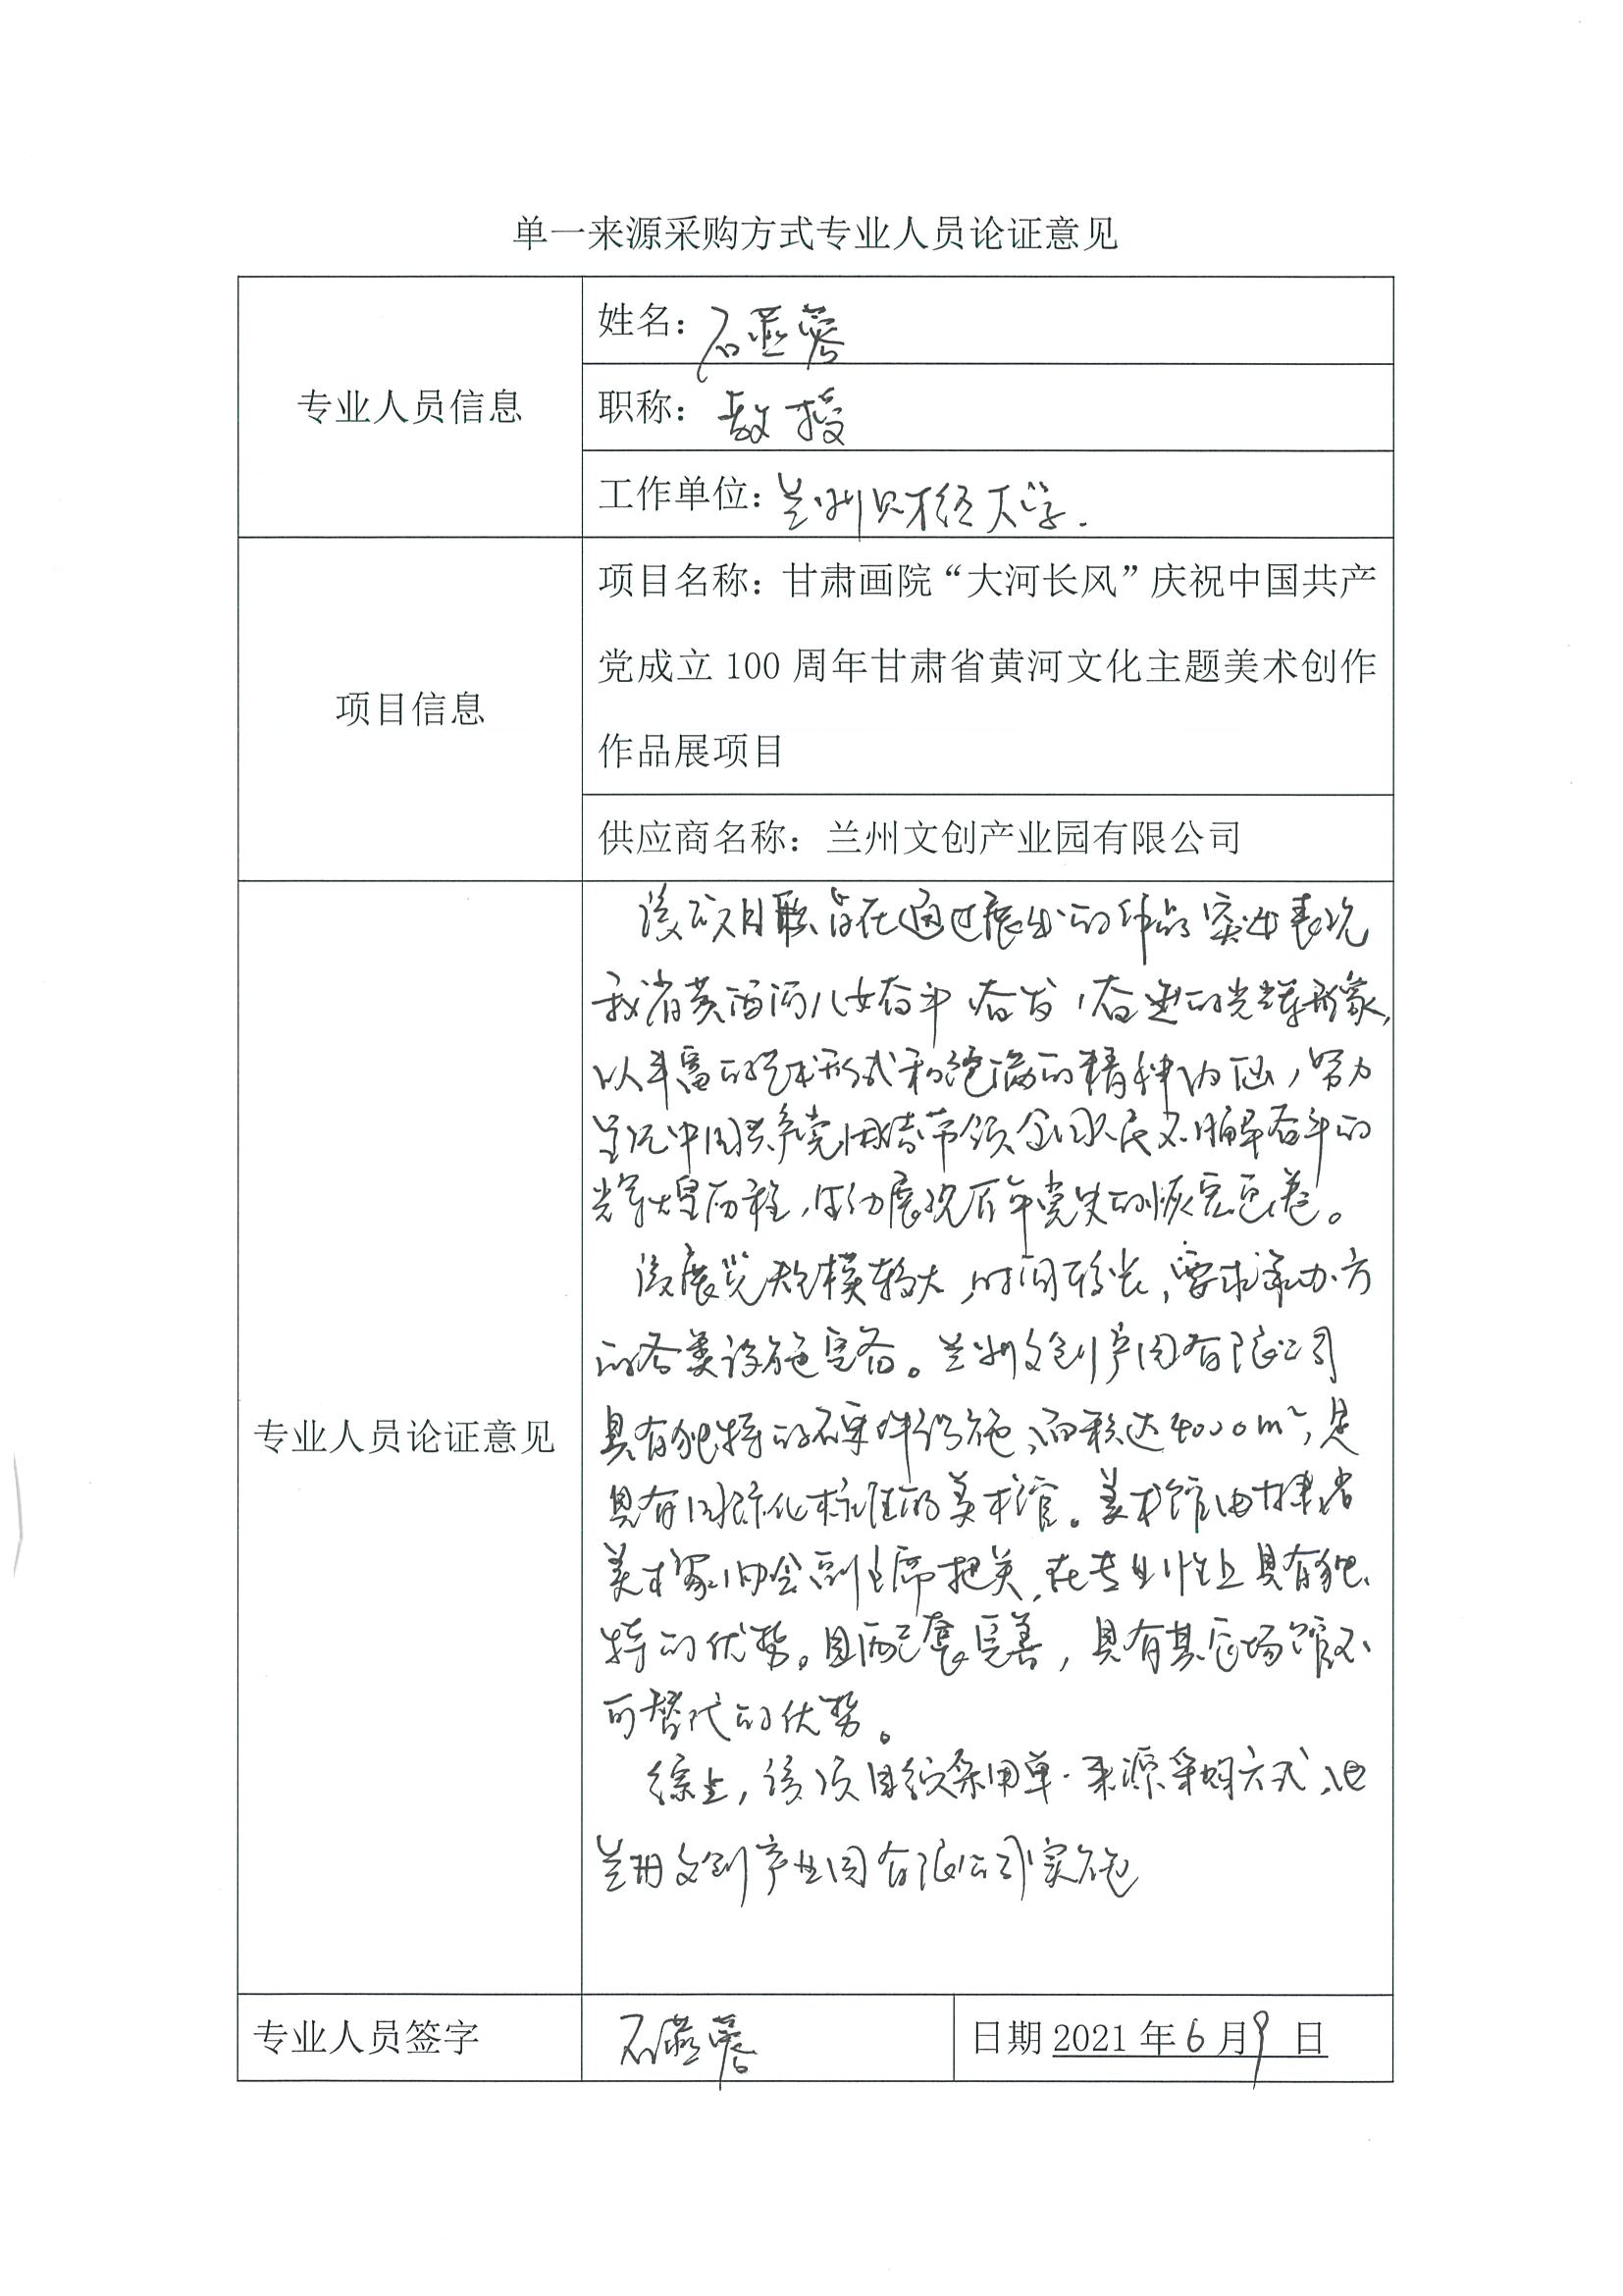 单一来源采购方式专业人员论证意见
专业人员信息
姓名：石燕蓉
职称：教授
工作单位：兰州财经大学.
项目信息
项目名称：甘肃画院“大河长风”庆祝中国共产
党成立 100 周年甘肃省黄河文化主题美术创作
作品展项目
供应商名称：兰州文创产业园有限公司
专业人员论证意见
该项目旨在通过展出的作品突出表现
我省黄河儿女奋斗、奋发、奋进的光辉形象,
以丰富的艺术形式和饱满的精神内涵，努力
呈现中国共产党团结带领全国人民不懈奋斗的
光辉历程，生动展现百年党史的恢宏画卷。
该展览规模较大，时间较长，要求承办方
的各类设施完备。兰州文创产园有限公司
具有独特的硬件设施，面积达4000m²，是
具有国际化标准的美术馆。美术馆由甘肃省
美术家协会副主席把关，在专业性上具有独
特的优势。且配套完善，具有其它场馆不
可替代的优势。
综上，该项目采用单一来源采购方式，由
兰州文创产业园有限公司实施
专业人员签字
石燕蓉
日期 2021 年 6 月 9 日